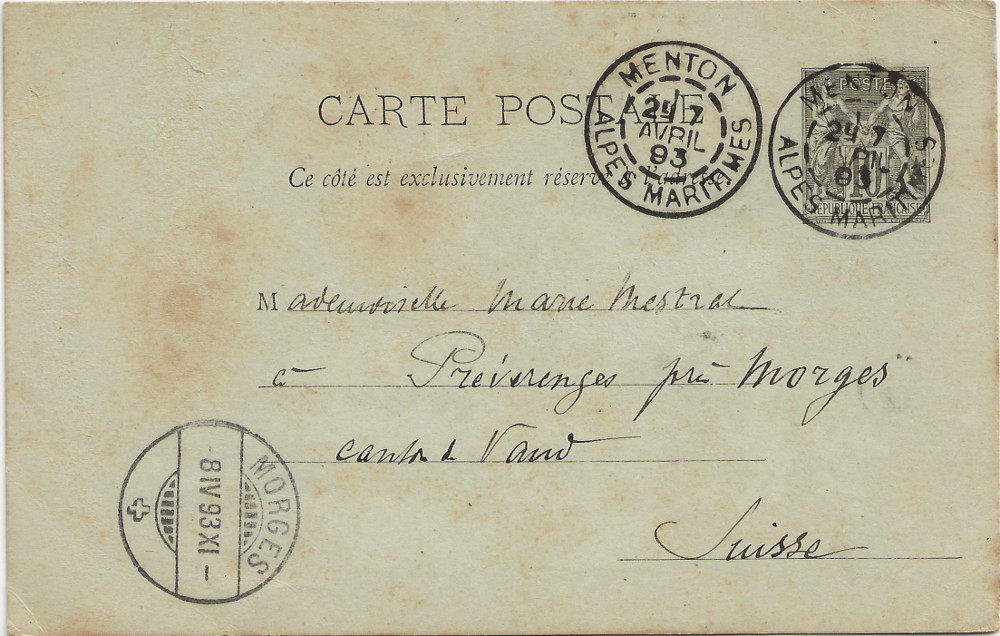 CARTE POSTALE
Ce côté est exclusivement réservé à l'adresse
MENTON
2E 7
AVRIL
93
ALPES MARITIMES
POSTES
10
RÉPUBLIQUE FRANÇAISE
MENTON
2E 7
AVRIL
93
ALPES MARITIMES
Mademoiselle Marie Mestral
à Préverenges près Morges
canton de Vaud
Suisse
MORGES
-8 IV 93 XI -